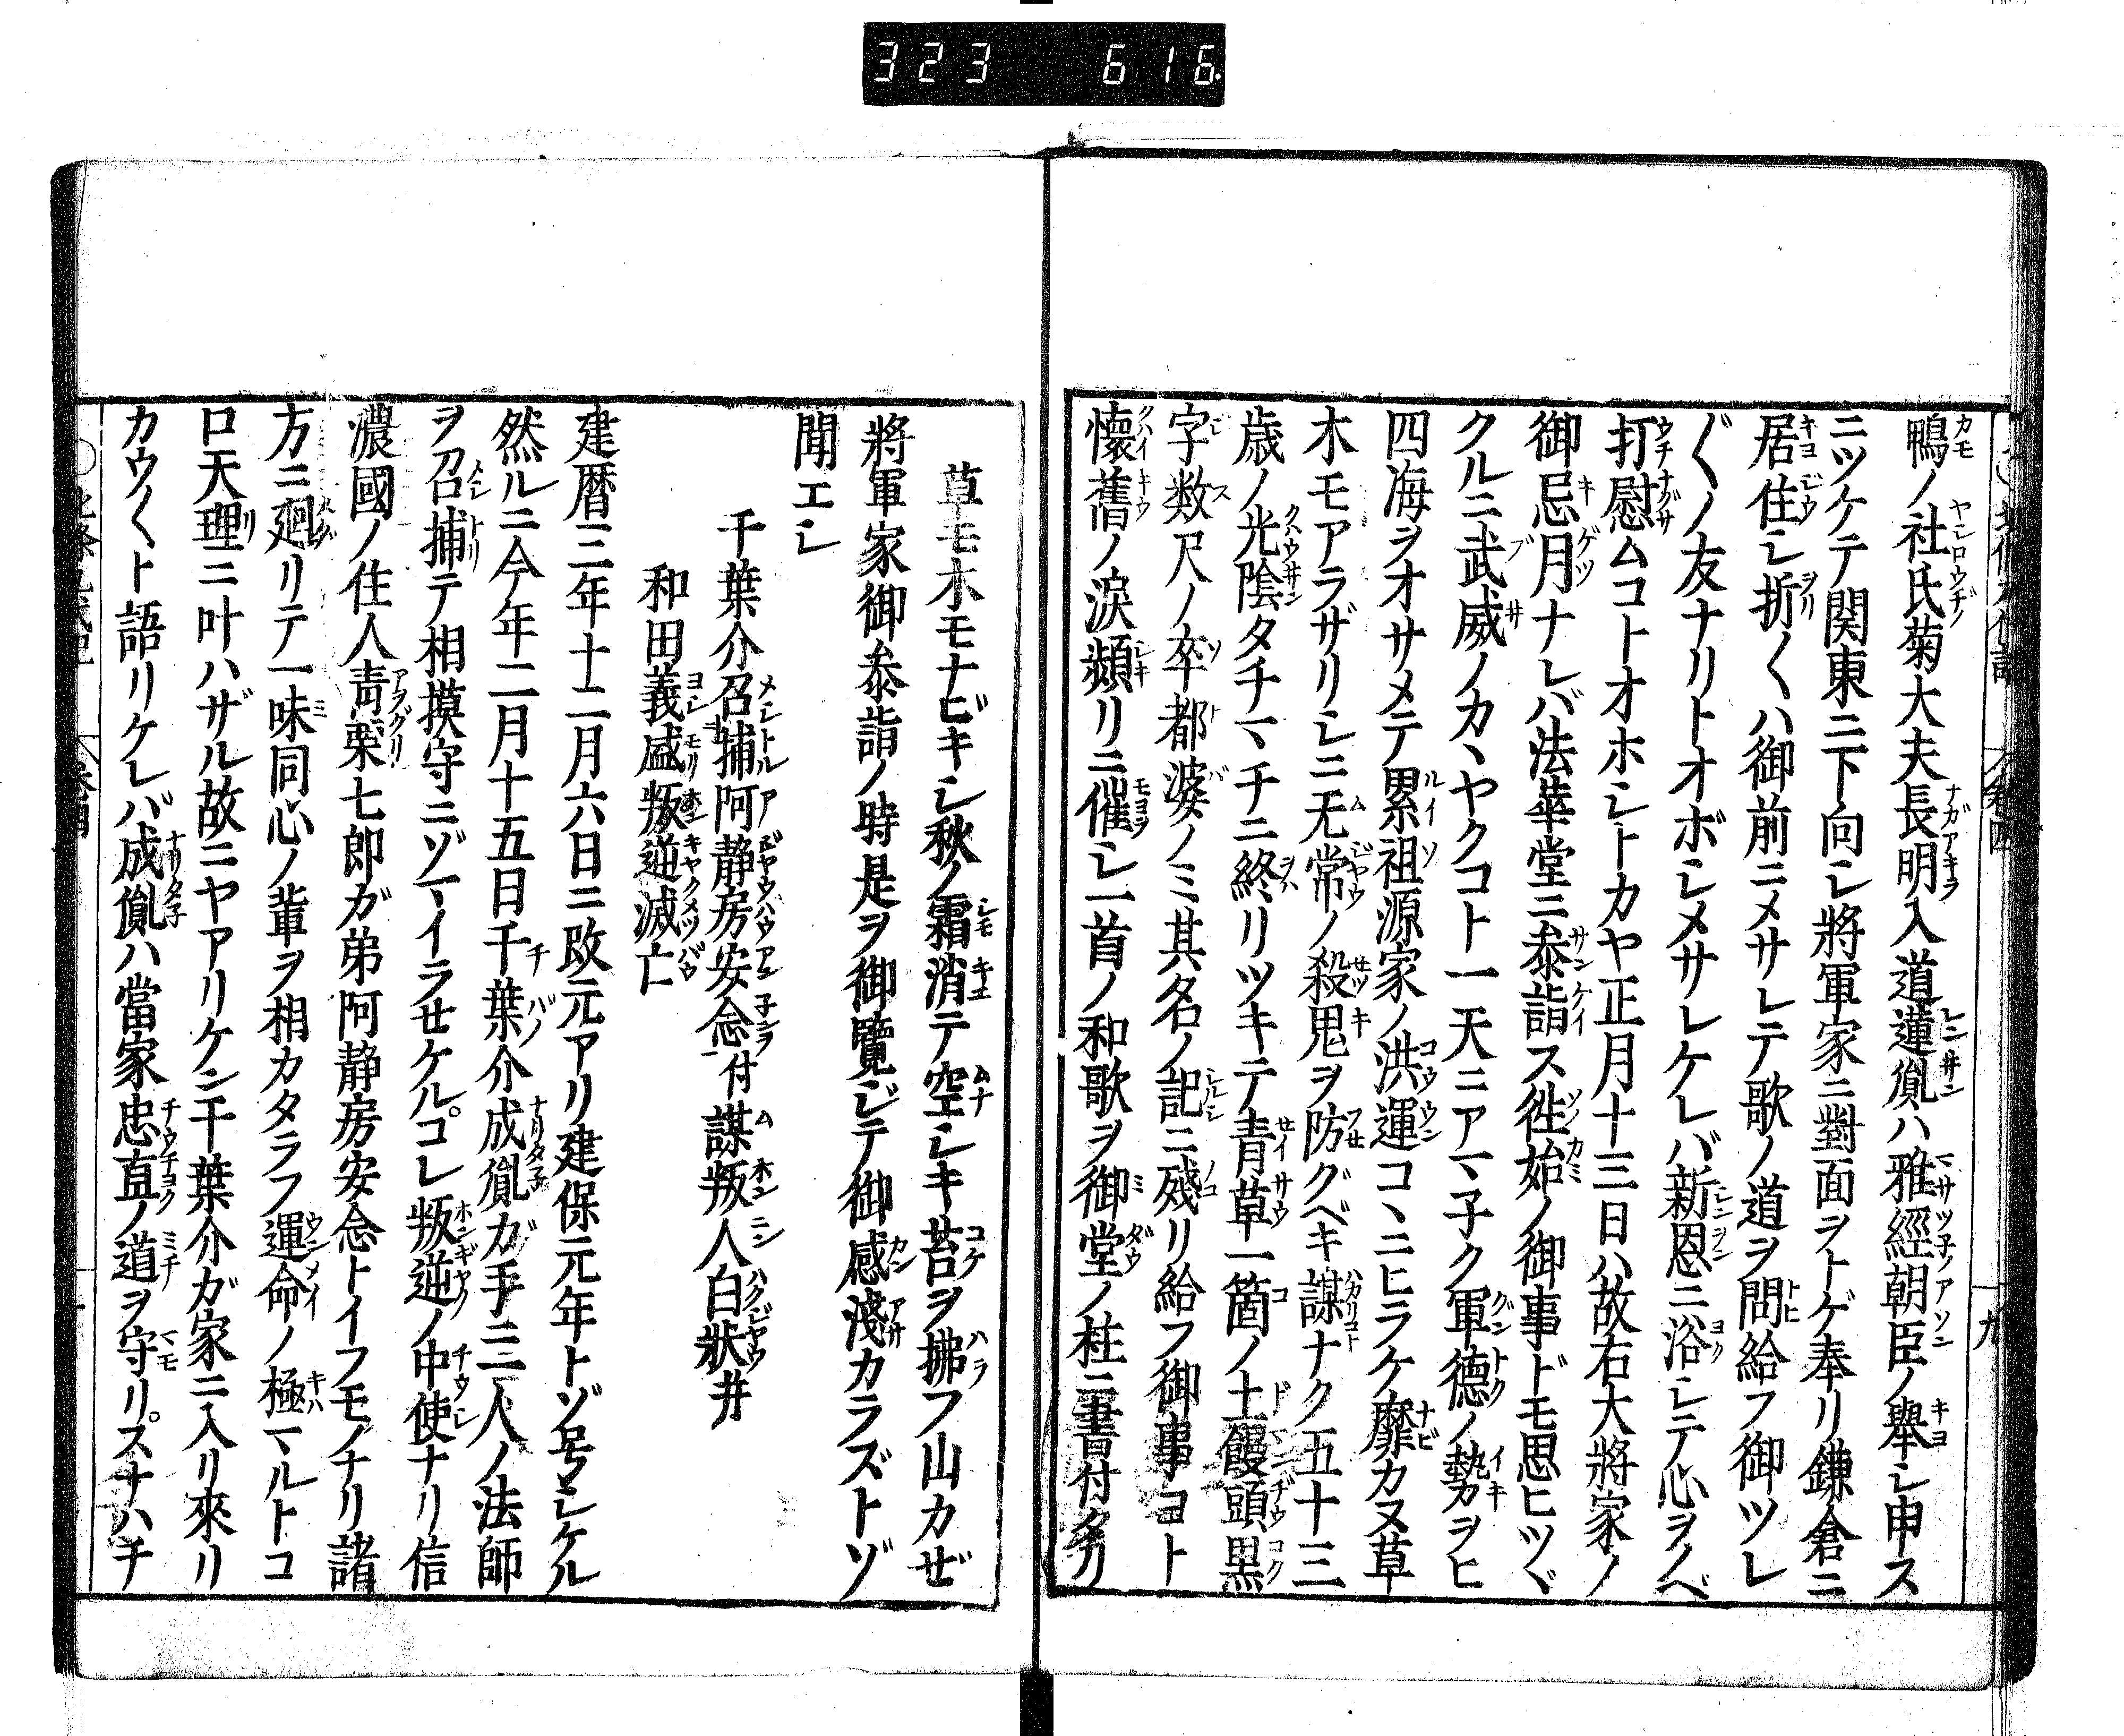 323 616
鴨ノ社氏菊大夫長明入道蓮胤ハ雅經朝臣ノ舉シ申ス
ニツケテ関東ニ下向シ將軍家ニ對面ヲトゲ奉リ鎌倉ニ
居住シ折〱ハ御前ニメサレテ歌ノ道ヲ問給フ御ツレ
〲ノ友ナリトオボシメサレケレバ新恩ニ浴シテ心ヲノベ
打慰ムコトオホシトカヤ正月十三日ハ故右大將家ノ
御忌月ナレバ法華堂ニ叅詣ス徃始ノ御事ドモ思ヒツヾ
クルニ武威ノカヽヤクコト一天ニアマ子ク軍德ノ勢ヲヒ
四海ヲオサメテ累祖源家ノ洪運コヽニヒラケ靡カヌ草
木モアラザリシニ无常ノ殺鬼ヲ防グベキ謀ナク五十三
歳ノ光陰タチマチニ終リツキテ青草一箇ノ土饅頭黒
字数尺ノ卒都婆ノミ其名ノ記ニ殘リ給フ御事ヨト
懐舊ノ涙頻リニ催シ一首ノ和歌ヲ御堂ノ柱ニ書付タリ
草モ木モナビキシ秋ノ霜消テ空シキ苔ヲ拂フ山カゼ
將軍家御叅詣ノ時是ヲ御覽ジテ御感淺カラズトゾ
聞エシ
千葉介召捕阿静房安念付謀叛人白狀幷
和田義盛叛逆滅亡
建暦三年十二月六日ニ改元アリ建保元年トゾ号シケル
然ルニ今年二月十五日千葉介成胤ガ手ニ一人ノ法師
ヲ召捕テ相摸守ニゾマイラせケルコレ叛逆ノ中使ナリ信
濃國ノ住人靑栗七郎ガ弟阿静房安念トイフモノナリ諸
方ニ廻リテ一味同心ノ輩ヲ相カタラフ運命ノ極マルトコ
ロ天理ニ叶ハザル故ニヤアリケン千葉介ガ家ニ入リ來リ
カウ〱ト語リケレバ成胤ハ當家忠直ノ道ヲ守リスナハチ